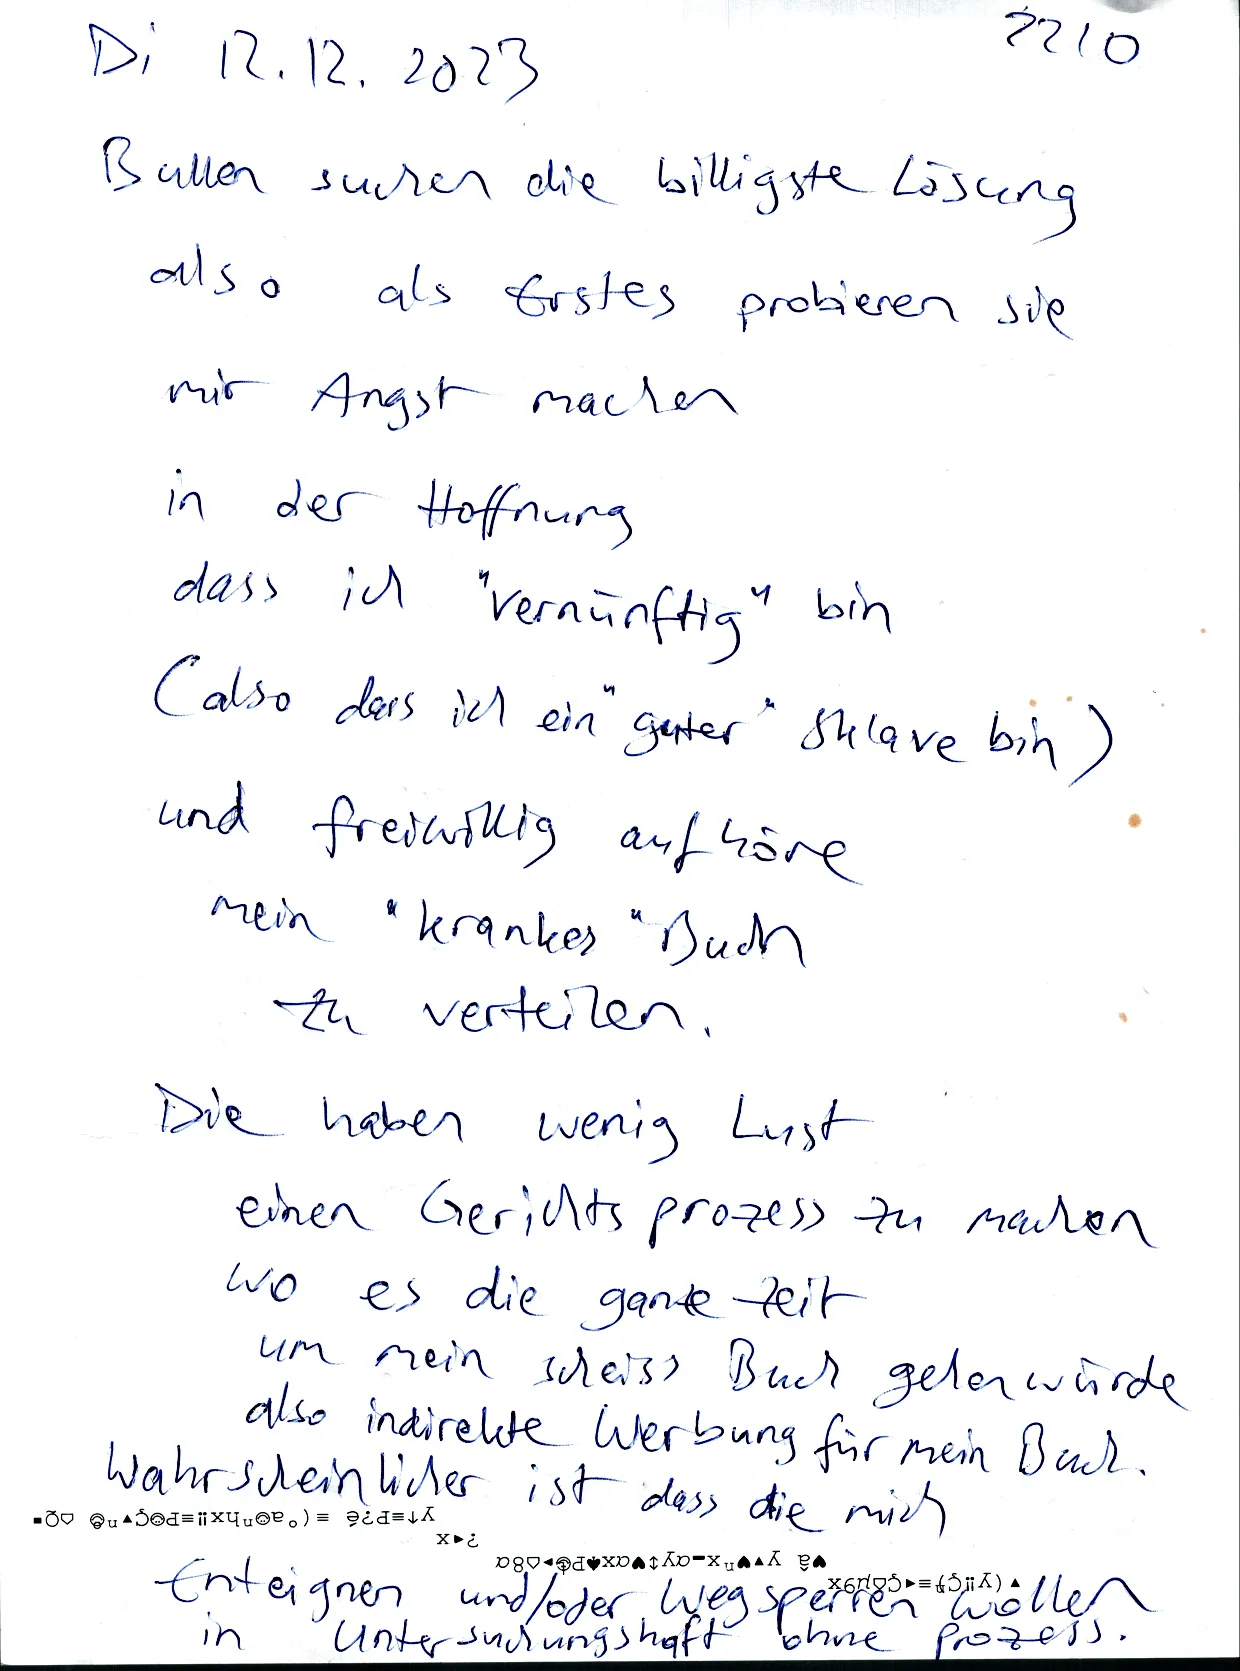 Di 12.12.2023 2210
Bullen suchen die billigste Lösung
also als Erstes probieren sie
mir Angst machen
in der Hoffnung
dass ich "vernünftig" bin
(also dass ich ein "guter" Sklave bin)
und freiwillig aufhöre
mein "krankes" Buch
zu verteilen.
Die haben wenig Lust
einen Gerichtsprozess zu machen
wo es die ganze Zeit
um mein scheiss Buch gehen würde
also indirekte Werbung für mein Buch.
Wahrscheinlicher ist dass die mich
Enteignen und/oder Wegsperren wollen
in Untersuchungshaft ohne Prozess.